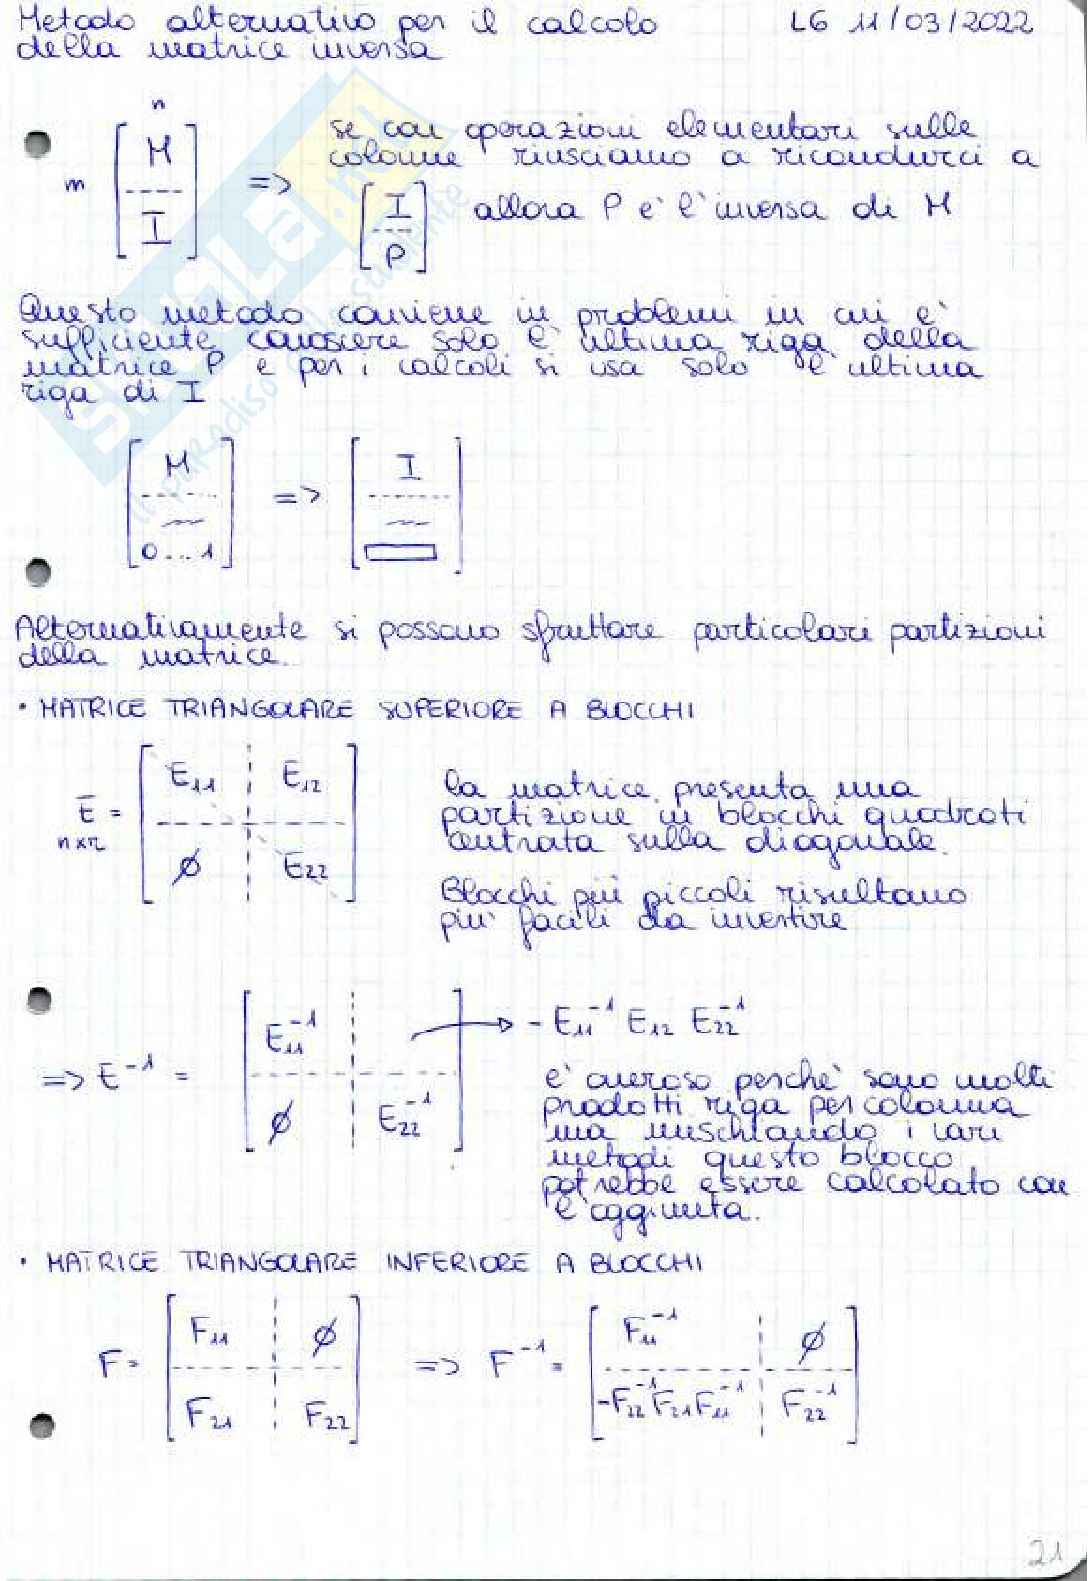 Metodo alternativo per il calcolo L6 11/03/2022
della matrice inversa
n
m [ M / I ] => se con operazioni elementari sulle
colonne riusciamo a ricondurci a
[ I / P ] allora P e' l'inversa di M
Questo metodo conviene in problemi in cui e'
sufficiente conoscere solo l'ultima riga della
matrice P e per i calcoli si usa solo l'ultima
riga di I
[ M / ~ / 0...1 ] => [ I / ~ / ▭ ]
Alternativamente si possono sfruttare particolari partizioni
della matrice.
• MATRICE TRIANGOLARE SUPERIORE A BLOCCHI
E̅ = [ E₁₁ E₁₂ / ∅ E₂₂ ]
n×n
la matrice presenta una
partizione in blocchi quadrati
centrata sulla diagonale.
Blocchi più piccoli risultano
piu' facili da invertire
=> E⁻¹ = [ E₁₁⁻¹ / ∅ E₂₂⁻¹ ] → - E₁₁⁻¹ E₁₂ E₂₂⁻¹
e' oneroso perche' sono molti
prodotti riga per colonna
ma mischiando i vari
metodi questo blocco
potrebbe essere calcolato con
l'aggiunta.
• MATRICE TRIANGOLARE INFERIORE A BLOCCHI
F = [ F₁₁ ∅ / F₂₁ F₂₂ ] => F⁻¹ = [ F₁₁⁻¹ ∅ / -F₂₂⁻¹F₂₁F₁₁⁻¹ F₂₂⁻¹ ]
21